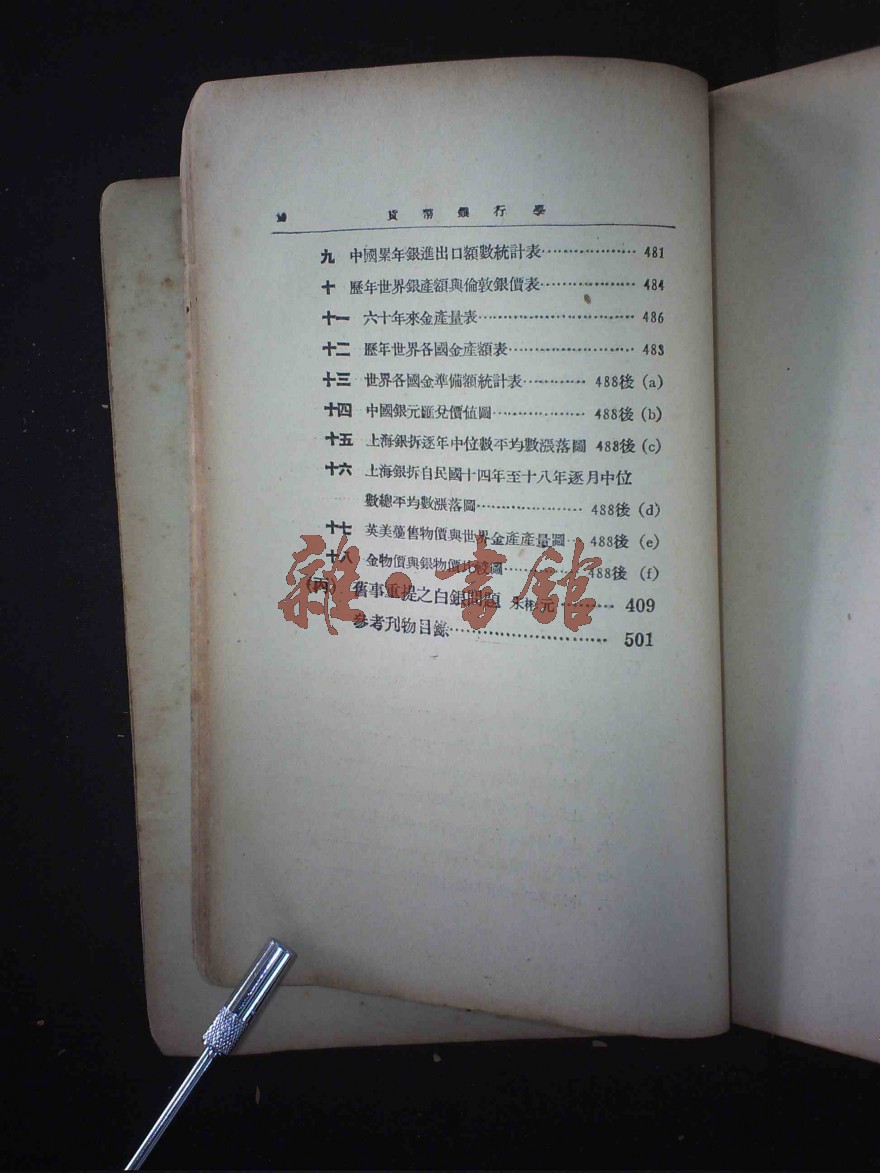 貨幣銀行學
九 中國累年銀進出口額數統計表 481
十 歷年世界銀產額與倫敦銀價表 484
十一 六十年來金產量表 486
十二 歷年世界各國金產額表 488
十三 世界各國金準備額統計表 488後 (a)
十四 中國銀元匯兌價值圖 488後 (b)
十五 上海銀拆逐年中位數平均數漲落圖 488後 (c)
十六 上海銀拆自民國十四年至十八年逐月中位
數總平均數漲落圖 488後 (d)
十七 英美躉售物價與世界金產產量圖 488後 (e)
十八 金物價與銀物價比較圖 488後 (f)
(丙) 舊事重提之白銀問題 朱彬元 409
參考刊物目錄 501
雜·書館